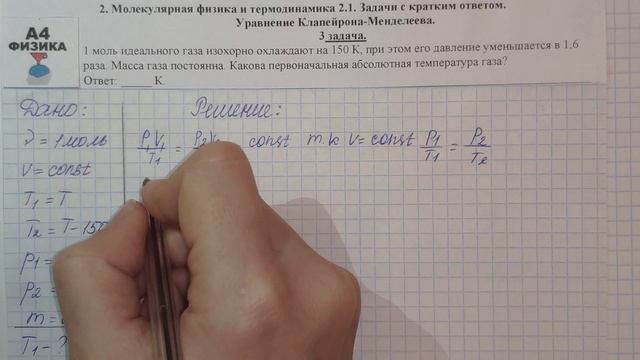 А4
ФИЗИКА
2. Молекулярная физика и термодинамика 2.1. Задачи с кратким ответом.
Уравнение Клапейрона-Менделеева.
3 задача.
1 моль идеального газа изохорно охлаждают на 150 К, при этом его давление уменьшается в 1,6
раза. Масса газа постоянна. Какова первоначальная абсолютная температура газа?
Ответ: _____ К.
Дано:
ν = 1 моль
V = const
T₁ = T
T₂ = T - 150
P₁ =
P₂ =
m =
T₁ - ?
Решение:
P₁V₁/T₁ = const т.к V = const P₁/T₁ = P₂/T₂